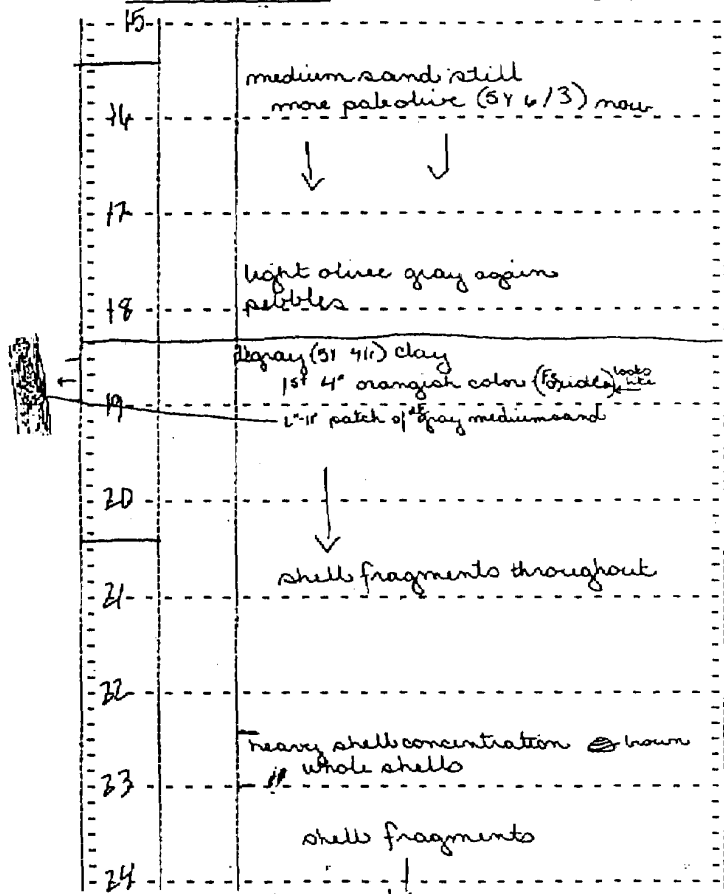 15
medium sand still
more pale olive (5Y 6/3) now
16
17
light olive gray again
pebbles
18
gray (5Y 4/1) clay
1st 4" orangish color (looks like
19
patch of gray medium sand
20
shell fragments throughout
21
22
heavy shell concentration brown
whole shells
23
shell fragments
24